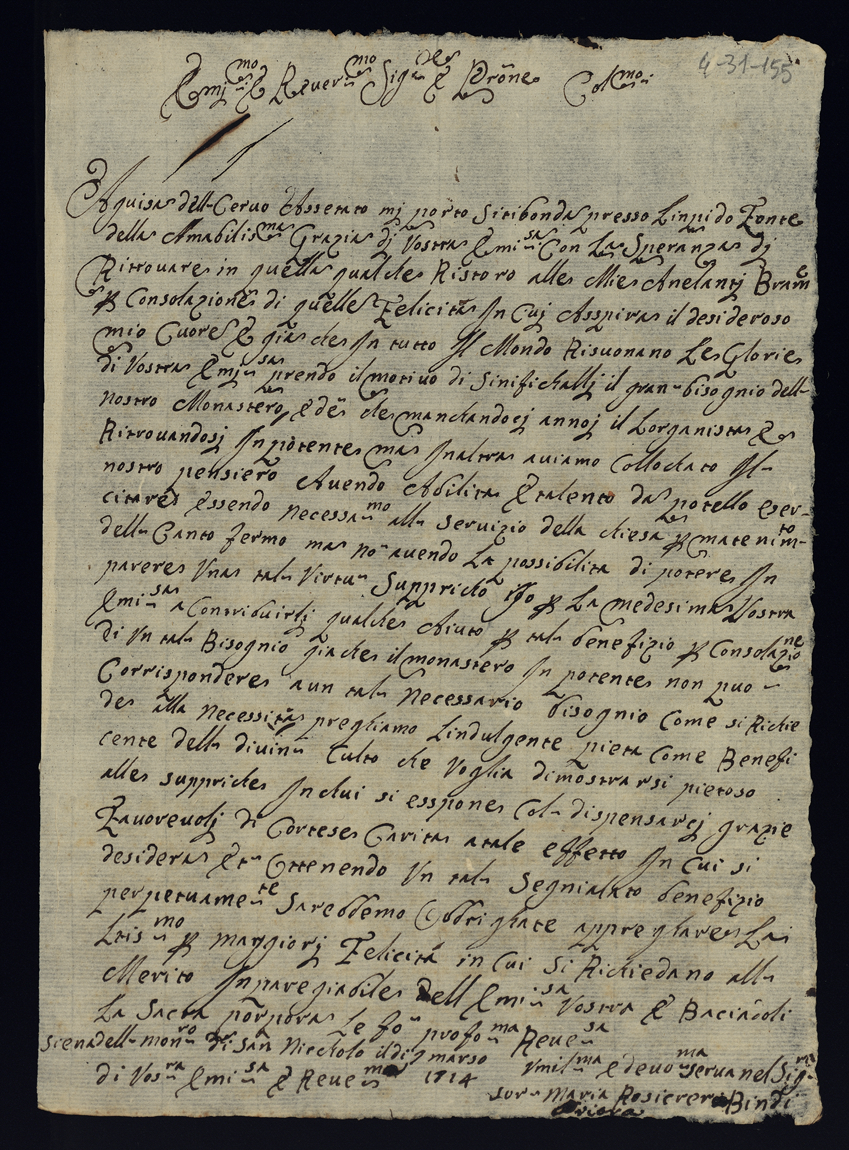 4-31-155
Emj:mo E Reuer:mo Sig:re E Prōne Col:mo
Aguisa dell Ceruo Assetato mj porto Sitibonda presso Linpido Fonte
della Amabilis:ma Grazia dj Vostra Emi:sa Con La Speranza dj
Ritrouare in quella qualche Ristoro alle Mie Anelantj Brame
p Consolazione di quelle Felicita In Cuj Asspira il desideroso
mio Cuore E gia che In tutto Il Mondo Risuonano Le Glorie
di Vostra Emj:sa prendo il motiuo di Sinifichallj il gran bisognio dell
nostro Monastero, E de che manchandocj annoj il Lorganista E
Ritrouandosj Inpotente ma Inaltra auiamo Collochato Il
nostro pensiero Auendo Abilita E talento da potello eser-
citare essendo necessa:mo all seruizio della chiesa p mantenim:to
dell Canto fermo ma no auendo La possibilita di potere In
parere Vna tal Virtu Suppricho Io p La medesima Vostra
Emi:sa a Contribuirlj qualche Aiuto p tal benefizio p Consolazio:ne
di Vn tal Bisognio giache il monastero In potente non puo
Corrispondere a un tal necessario bisognio Come si Richie
de alla necessita pregliamo Lindulgente pieta Come Benefi
cente dell diuin Culto che Voglia dimostrarsi pietoso
alle suppriche Inchui si esspone Col dispensarcj grazie
Fauoreuolj di Cortese Carita a tale effetto In Cui si
desidera E Ottenendo Vn tal Segnialato benefizio
perpetuame:te Sarebbemo Obbrighate appreghare Lai
Ltis:mo p maggiorj Felicita in Cui Si Richiedano all
Merito Inparegiabile dell Emi:sa Vostra E Baciādoli
La Sacra pōrpora Le fo profo:ma Reue:sa
Siena dell mon:ro di San Niccholo il di 9 marso
di Vos:ra Emi:sa E Reue:ma 1714 Vmil:ma e deuo:ma serua nel Sig:re
Suor Maria Rosiere Bindi
Priora